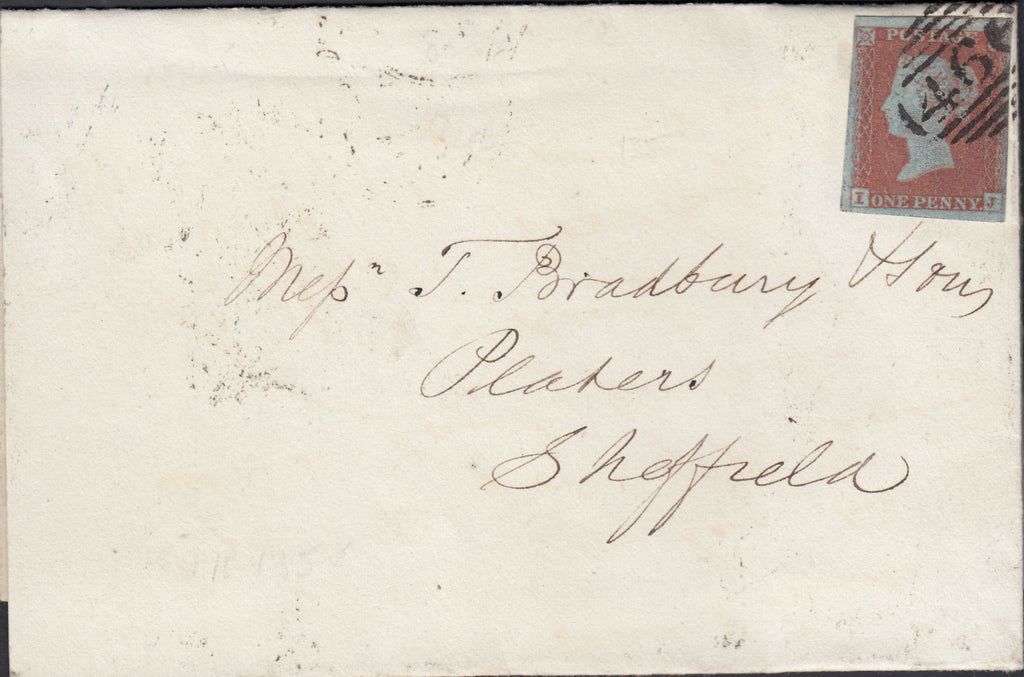 POSTAGE
466
I ONE PENNY. J
Messrs T. Bradbury & Sons
Platers
Sheffield